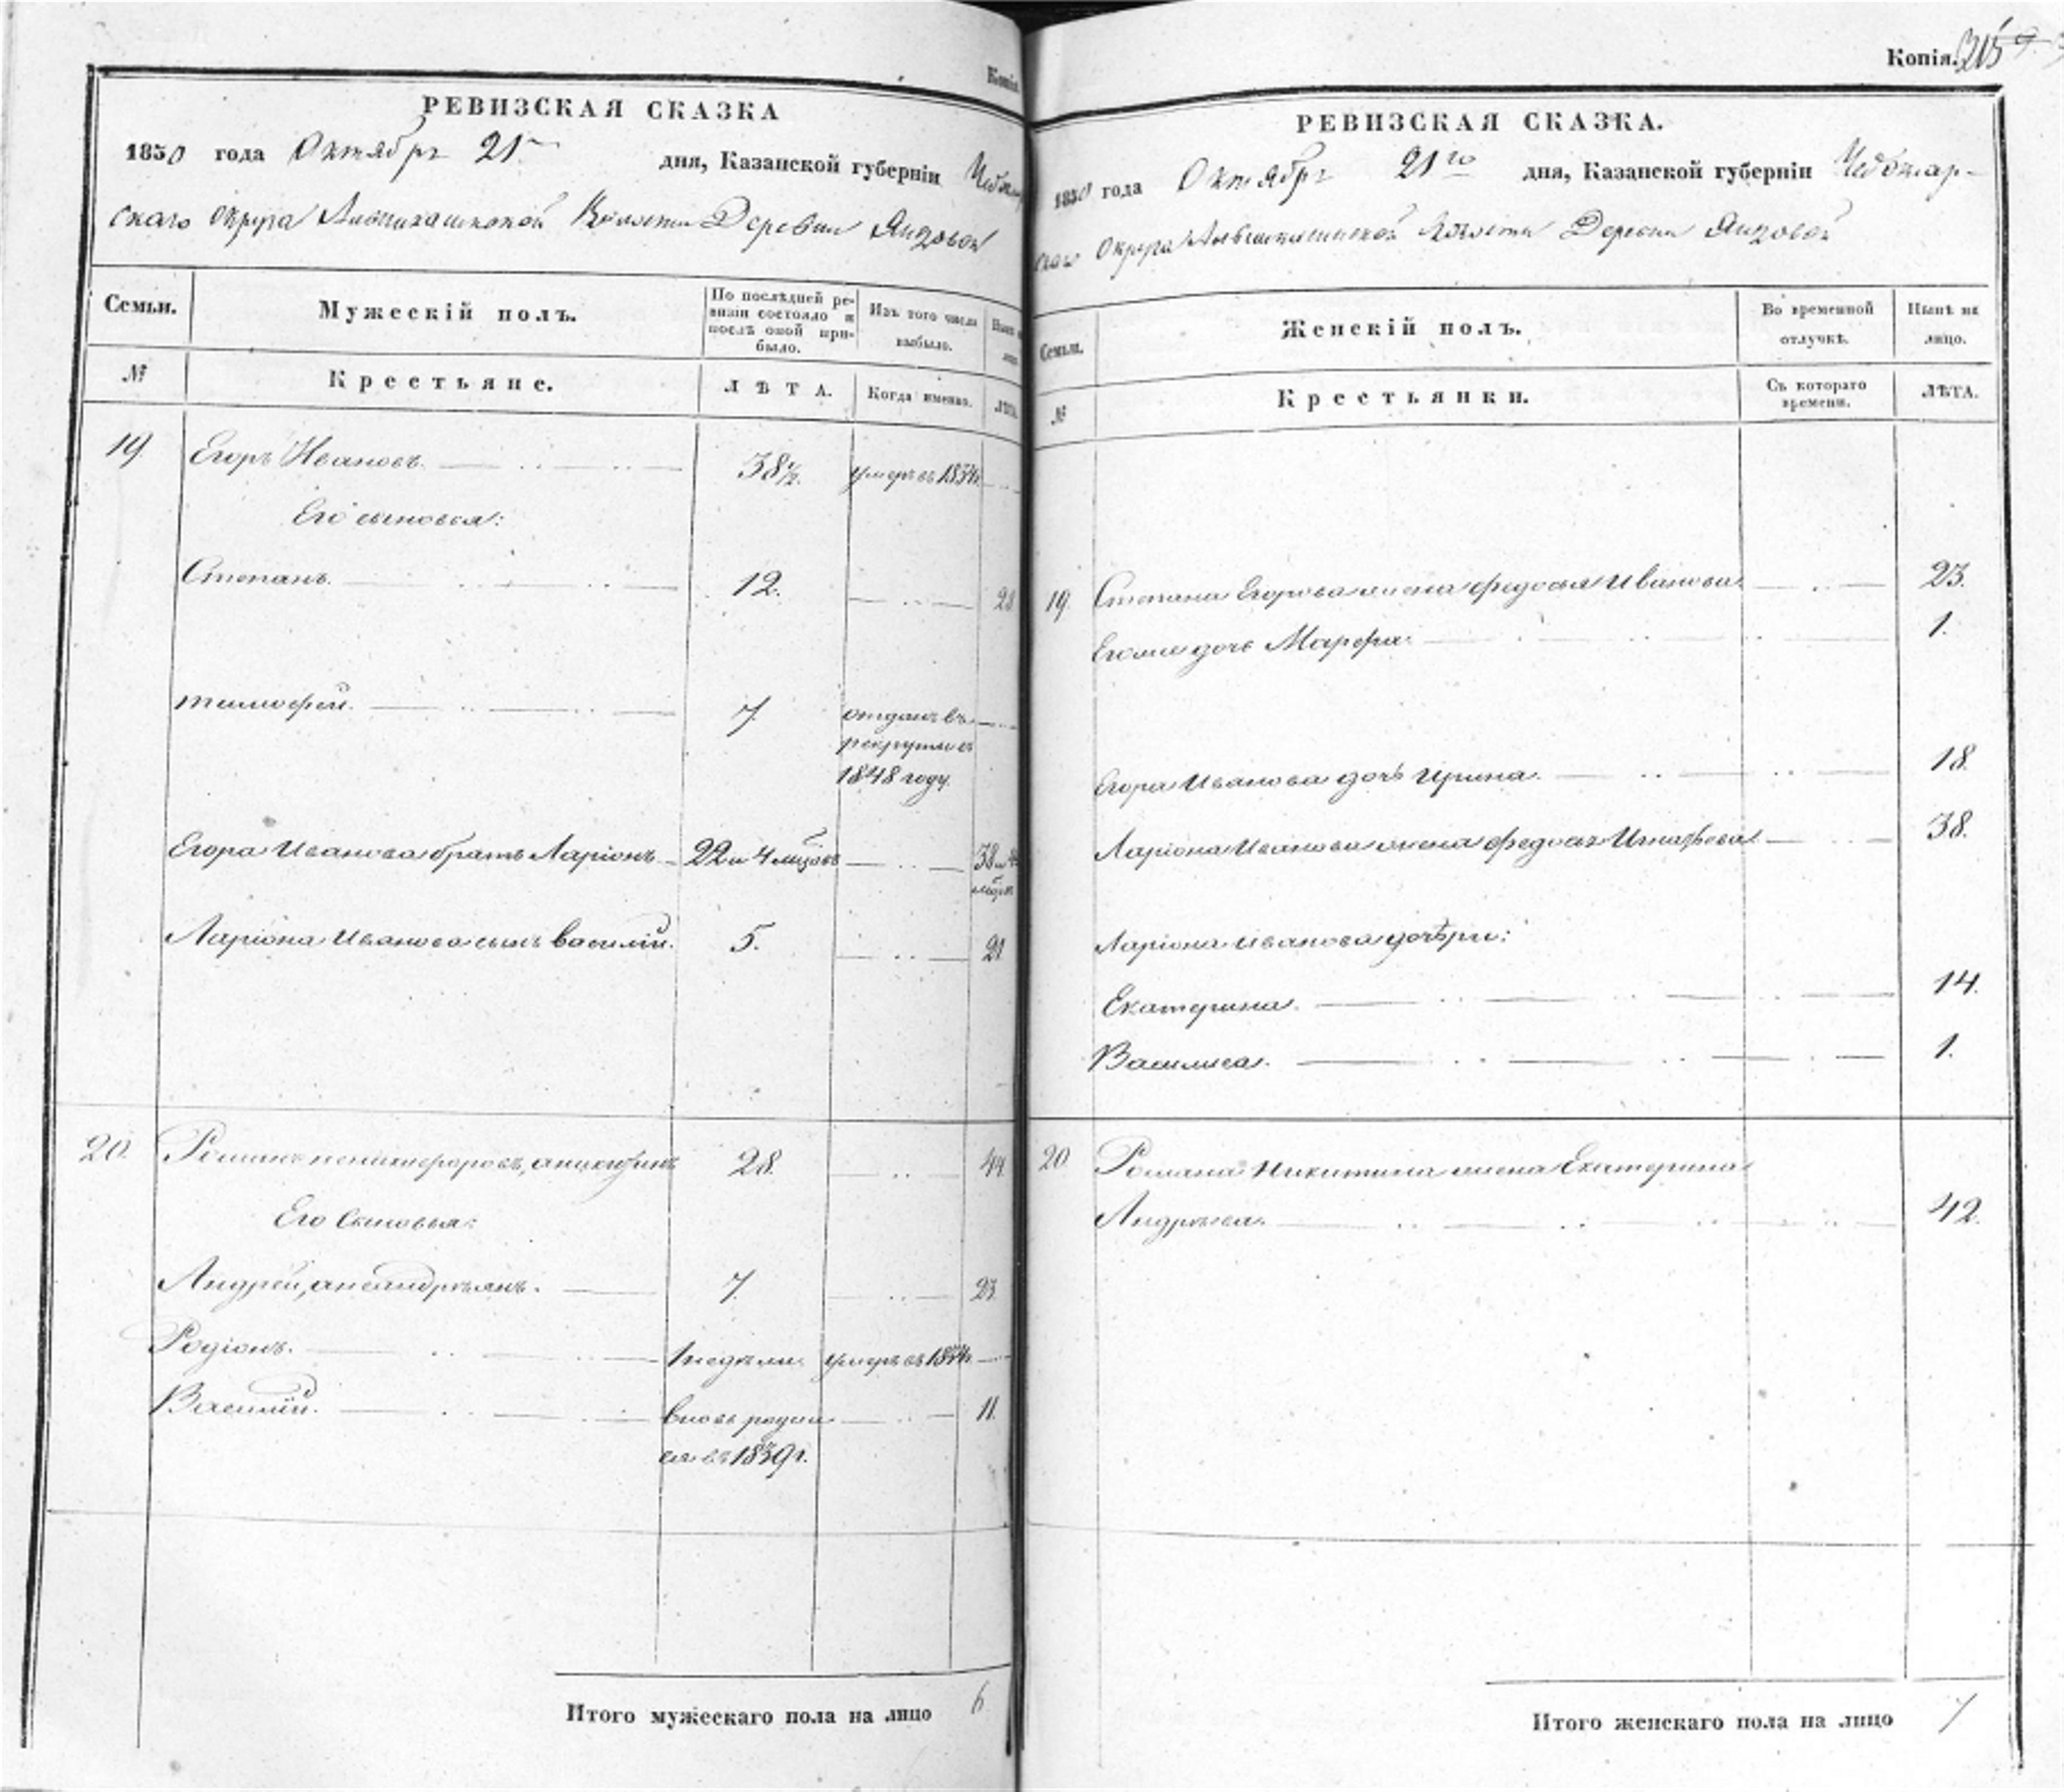 Копія
РЕВИЗСКАЯ СКАЗКА
1850 года Октября 21 дня, Казанской губерніи
скаго округа Волости Деревни Яндовой
Семьи.
Мужескій полъ.
По послѣдней ре-
визіи состояло и
послѣ оной при-
было.
Изъ того числа
выбыло.
№
Крестьяне.
ЛѢТА.
Когда именно.
19. Егоръ Ивановъ. 38½. умеръ въ 1834г.
Его сыновья:
Степанъ. 12. 28
Тимофей. 7. отданъ въ
рекруты въ
1848 году.
Егора Иванова братъ Ларіонъ 22 и 4 мѣсяц 38 и 4
Ларіона Иванова сынъ Василій. 5. 21
20. Романъ 28. 44
Его Сыновья:
Андрей, 7. 23
Родіонъ. 1 недѣли умеръ въ 1834г.
Василій. вновь родил
ся въ 1839г. 11.
Итого мужескаго пола на лицо 6
Копія. 215
РЕВИЗСКАЯ СКАЗКА.
1850 года Октября 21го дня, Казанской губерніи Чебоксар-
скаго Округа Волости Деревни Яндовой
Семьи.
Женскій полъ.
Во временной
отлучкѣ.
Нынѣ на
лицо.
№
Крестьянки.
Съ котораго
времени.
ЛѢТА.
19. Степана Егорова жена Федосья Иванова 23.
Его же дочь Марфа. 1.
Егора Иванова дочь Ирина. 18.
Ларіона Иванова жена Федосья 38.
Ларіона Иванова дочѣри:
Екатерина. 14.
Василиса. 1.
20 Романа Никитина жена Екатерина
Андреева. 42.
Итого женскаго пола на лицо 7